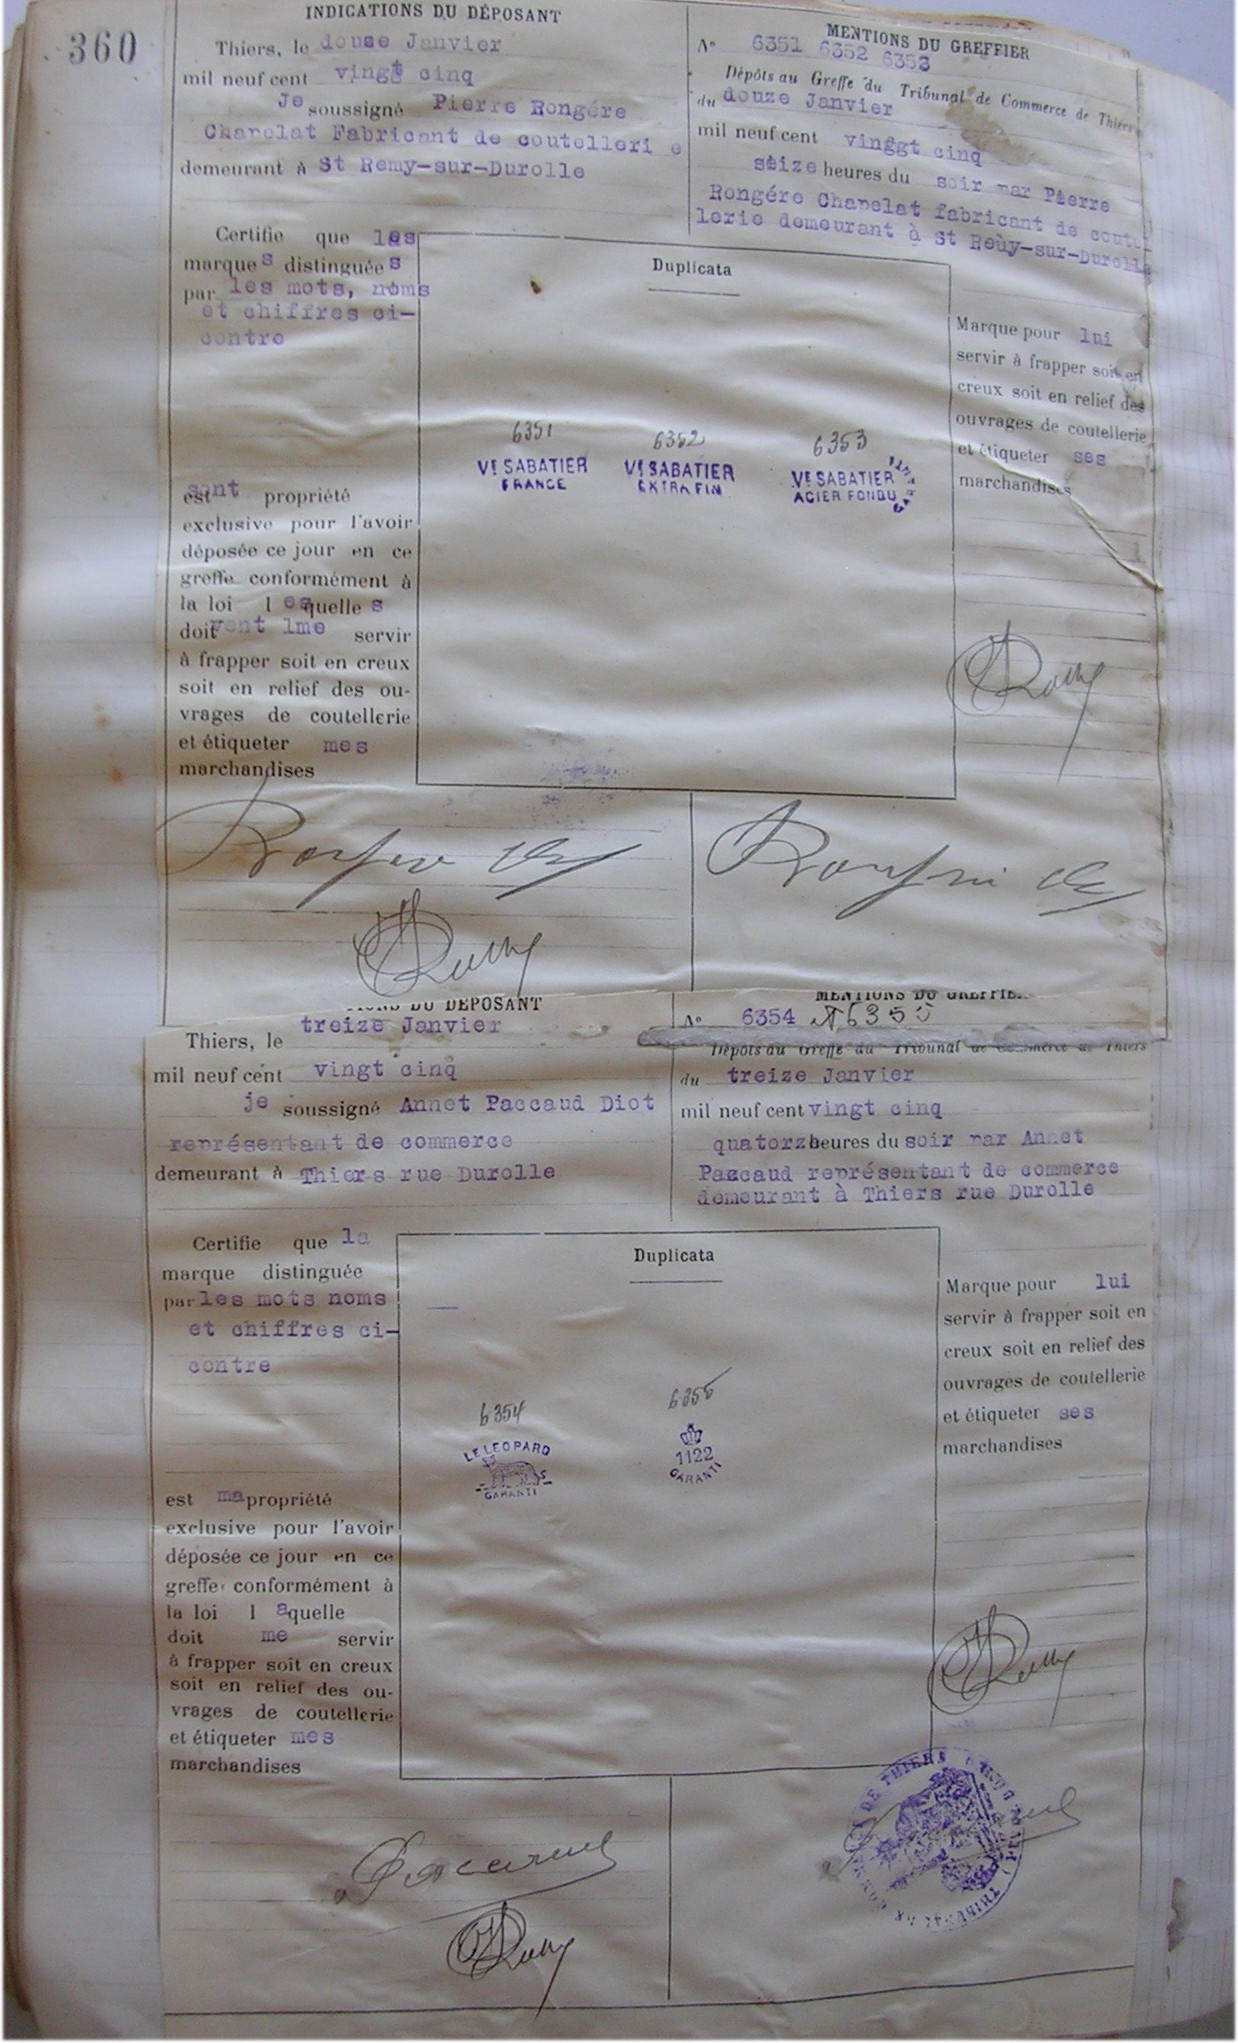 360
INDICATIONS DU DÉPOSANT
Thiers, le douze Janvier
mil neuf cent vingt cinq
Je soussigné Pierre Rongére
Chapelat Fabricant de coutelleri e
demeurant à St Remy-sur-Durolle
MENTIONS DU GREFFIER
N° 6351 6352 6353
Dépôts au Greffe du Tribunal de Commerce de Thiers
du douze Janvier
mil neuf cent vinggt cinq
seize heures du soir par Pierre
Rongére Chapelat fabricant de coute-
lerie demeurant à St Reùy-sur-Durolle
Certifie que les
marques distinguées
par les mots, noms
et chiffres ci-
contre
est sont propriété
exclusive pour l'avoir
déposée ce jour en ce
greffe conformément à
la loi l es quelle s
doit vent 1me servir
à frapper soit en creux
soit en relief des ou-
vrages de coutellerie
et étiqueter mes
marchandises
Duplicata
6351 6352 6353
Vᵗ SABATIER
FRANCE
Vᵗ SABATIER
EXTRA FIN
Vᵗ SABATIER
ACIER FONDU
GARANTI
Marque pour lui
servir à frapper soit en
creux soit en relief des
ouvrages de coutellerie
et étiqueter ses
marchandises
DU DÉPOSANT
Thiers, le treize Janvier
mil neuf cent vingt cinq
je soussigné Annet Paccaud Diot
représentant de commerce
demeurant à Thiers rue Durolle
MENTIONS DU GREFFIE
N° 6354 N 6355
Dépôts au Greffe du Tribunal de Commerce de Thiers
du treize Janvier
mil neuf cent vingt cinq
quatorzheures du soir par Annet
Paccaud représentant de commerce
demeurant à Thiers rue Durolle
Certifie que la
marque distinguée
par les mots noms
et chiffres ci-
contre
est ma propriété
exclusive pour l'avoir
déposée ce jour en ce
greffe conformément à
la loi l aquelle
doit me servir
à frapper soit en creux
soit en relief des ou-
vrages de coutellerie
et étiqueter mes
marchandises
Duplicata
6354 6355
LE LEOPARD
GARANTI
1122
GARANTI
Marque pour lui
servir à frapper soit en
creux soit en relief des
ouvrages de coutellerie
et étiqueter ses
marchandises
DE THIERS